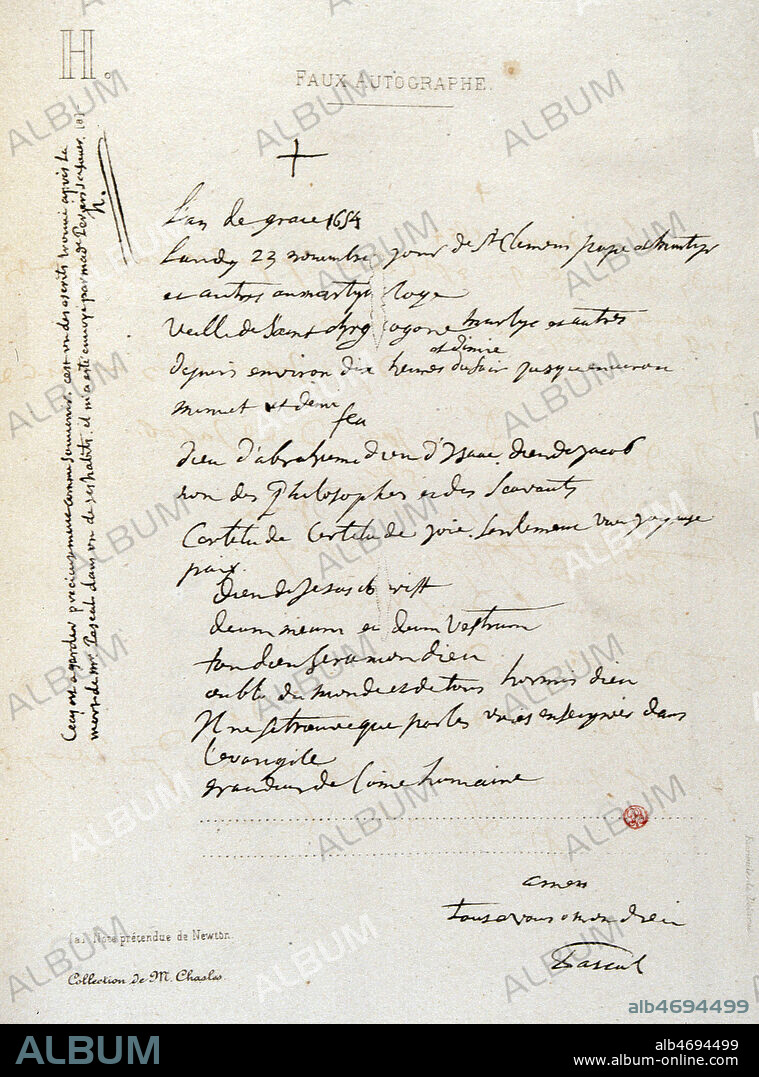 H.
FAUX AUTOGRAPHE.
L'an de grace 1654
Lundy 23 novembre jour de St Clement pape et martyr
et autres au martyrologe
veille de Saint Chrysogone martyr et autres
depuis environ dix heures et demie du soir jusque environ
minuit et demi
feu
dieu d'abraham dieu d'Isaac dieu de jacob
non des Philosophes et des Scavants
Certitude Certitude joie. Seulement vue joyeuse
paix.
Dieu de Jesus christ
deum meum et deum Vestrum
ton dieu sera mon dieu
oubli du monde et de tous hormis dieu
Il ne se trouve que par les voies enseignées dans
l'evangile
grandeur de l'ame humaine
amen
tous a vous o mon dieu
Pascal
Ceçy est a garder précieusement comme souvenir. c'est un des escrits trouvé après la
mort de Mr Pascal dans un de ses habits. il m'a esté envoyé par mad. Perier sa sœur. (a)
N.
(a) Note prétendue de Newton.
Collection de M. Chasles.
ALBUM
alb4694499
ALBUM
alb4694499
www.album-online.com